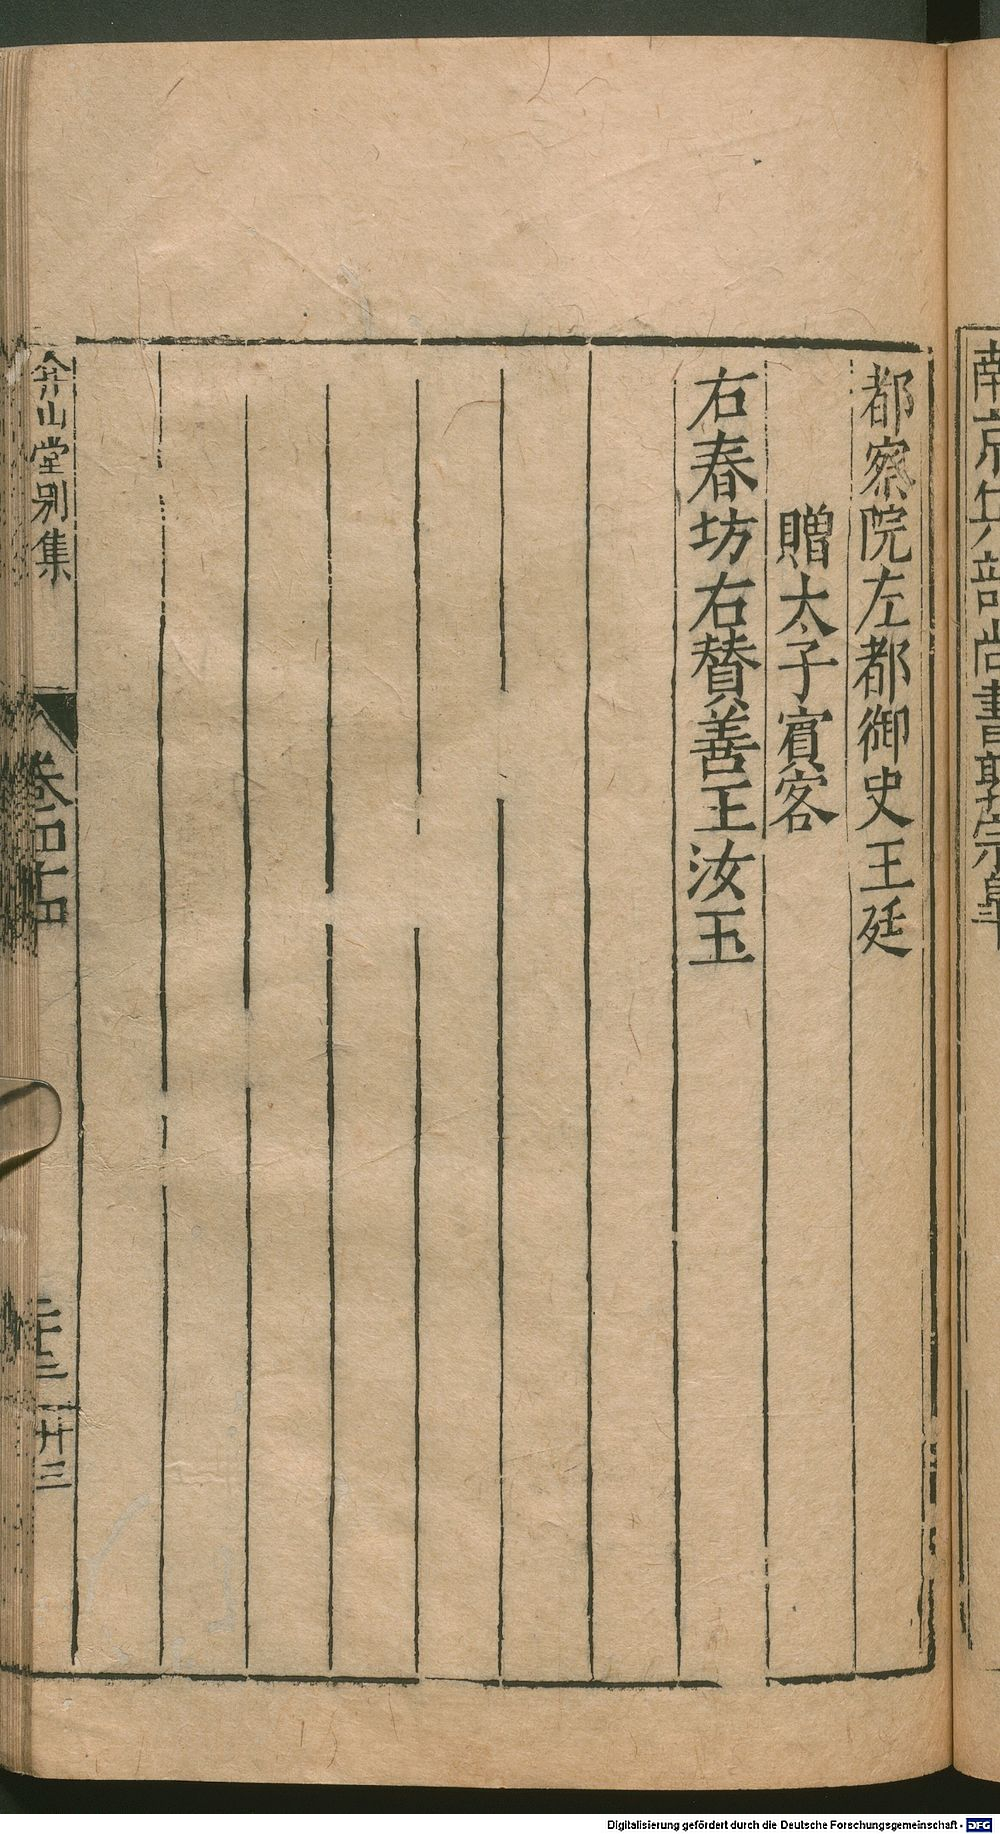 都察院左都御史王廷
贈太子賓客
右春坊右贊善王汝玉
弇山堂别集
卷四十四
卅三
南京兵部尚書
Digitalisierung gefördert durch die Deutsche Forschungsgemeinschaft - DFG